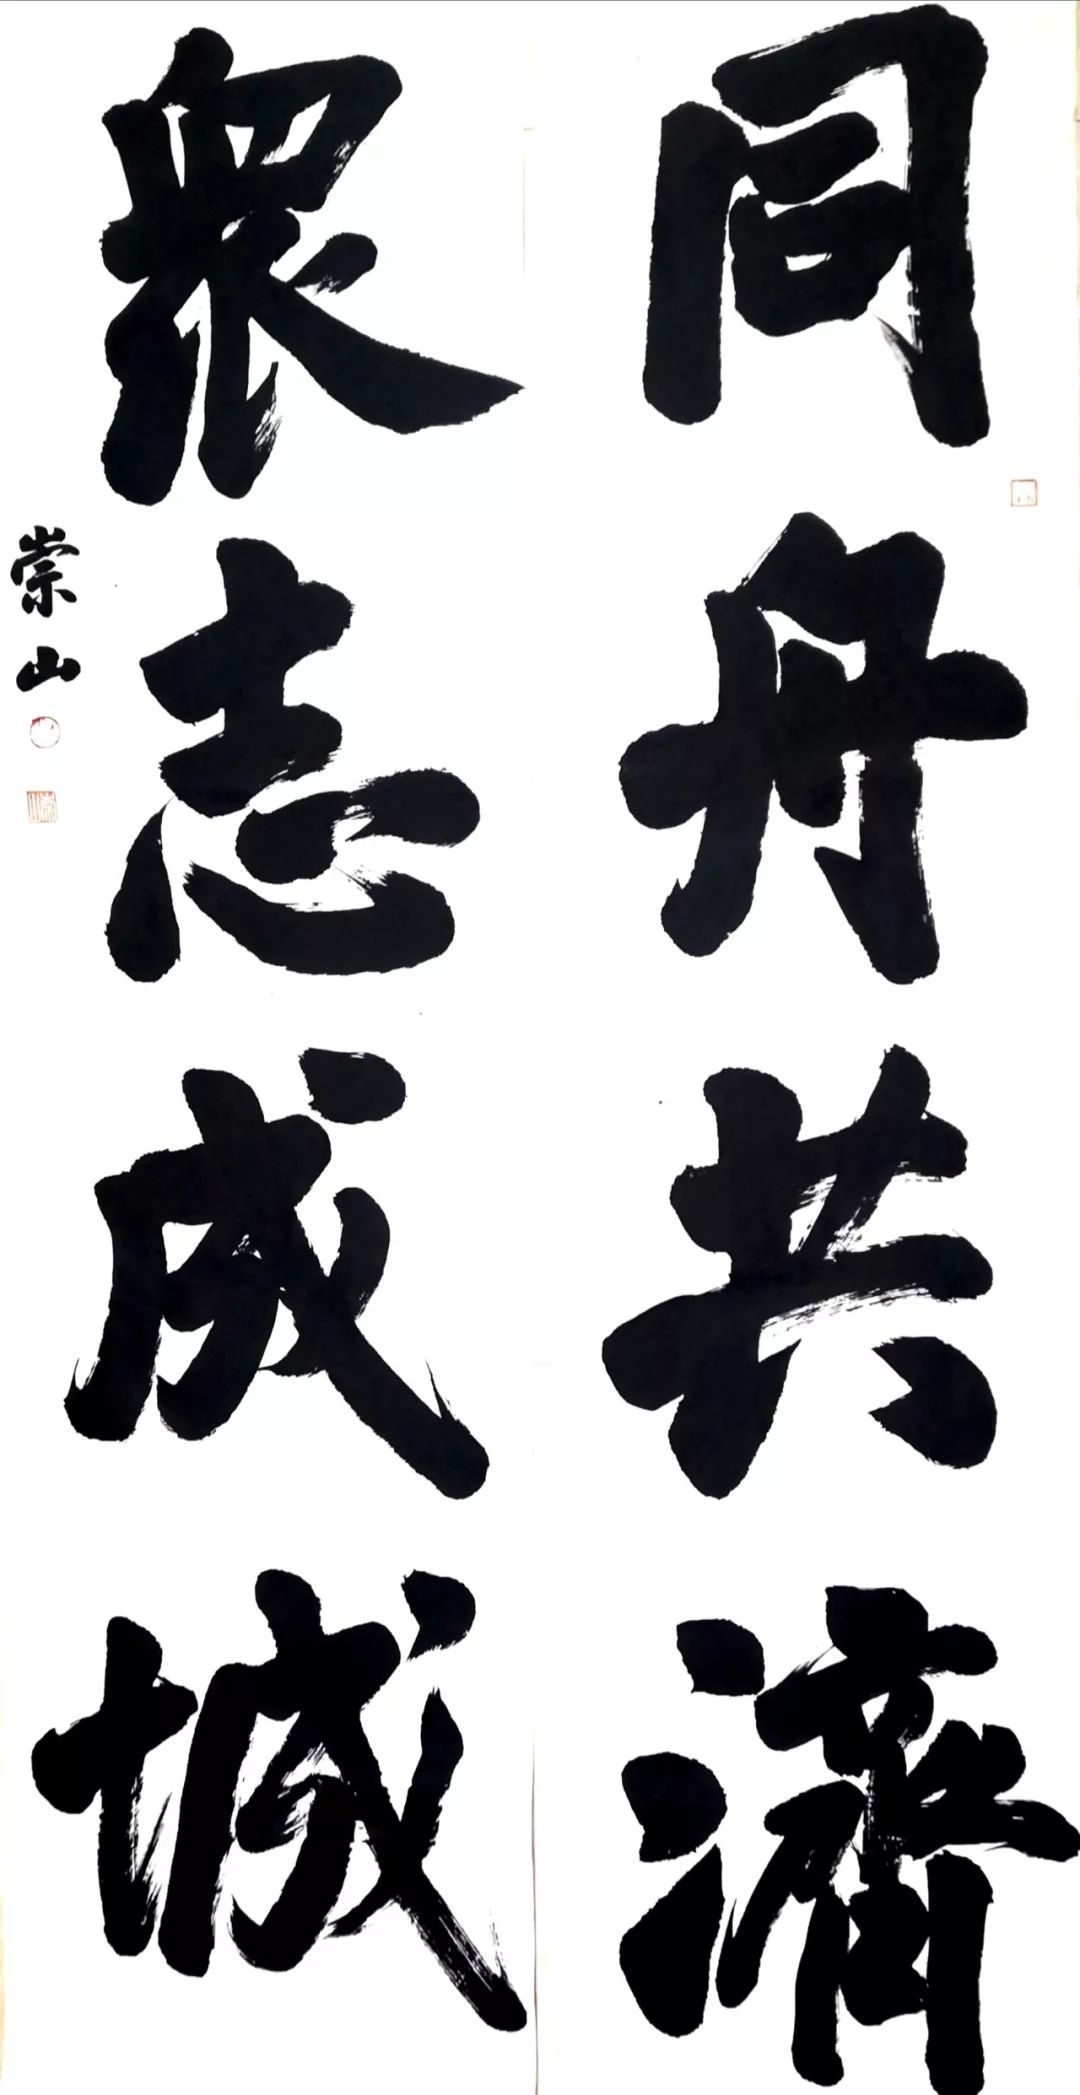 同舟共濟
眾志成城
崇山